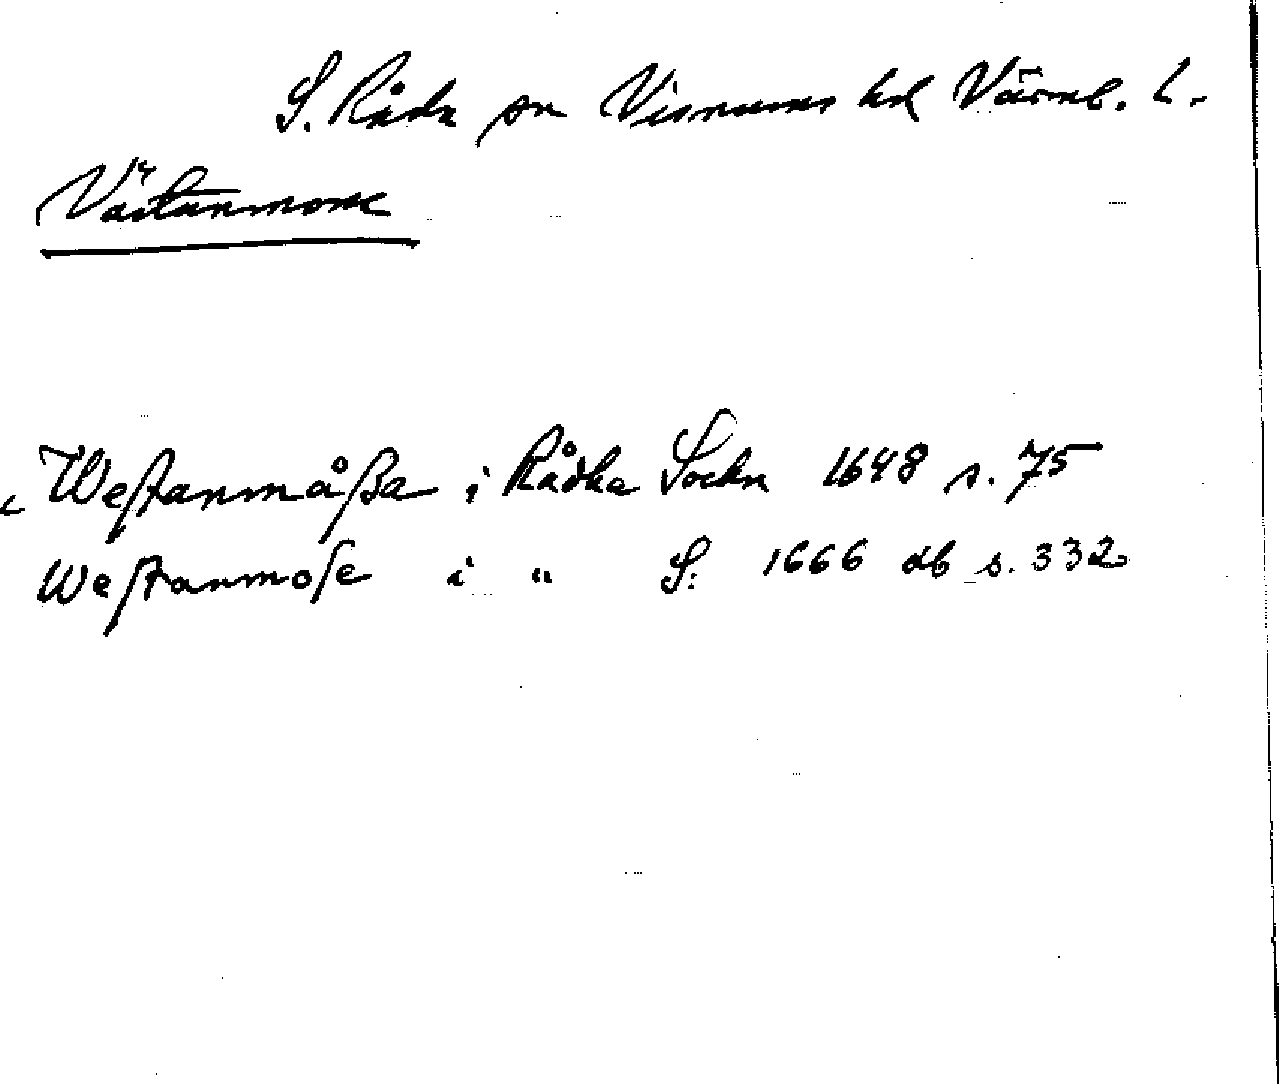 S. Råda sn Visnums hd Värml. L.
Västanmose
Westanmåßa i Rådha Sockn 1648 s. 75
Westanmose i " S: 1666 db s. 332